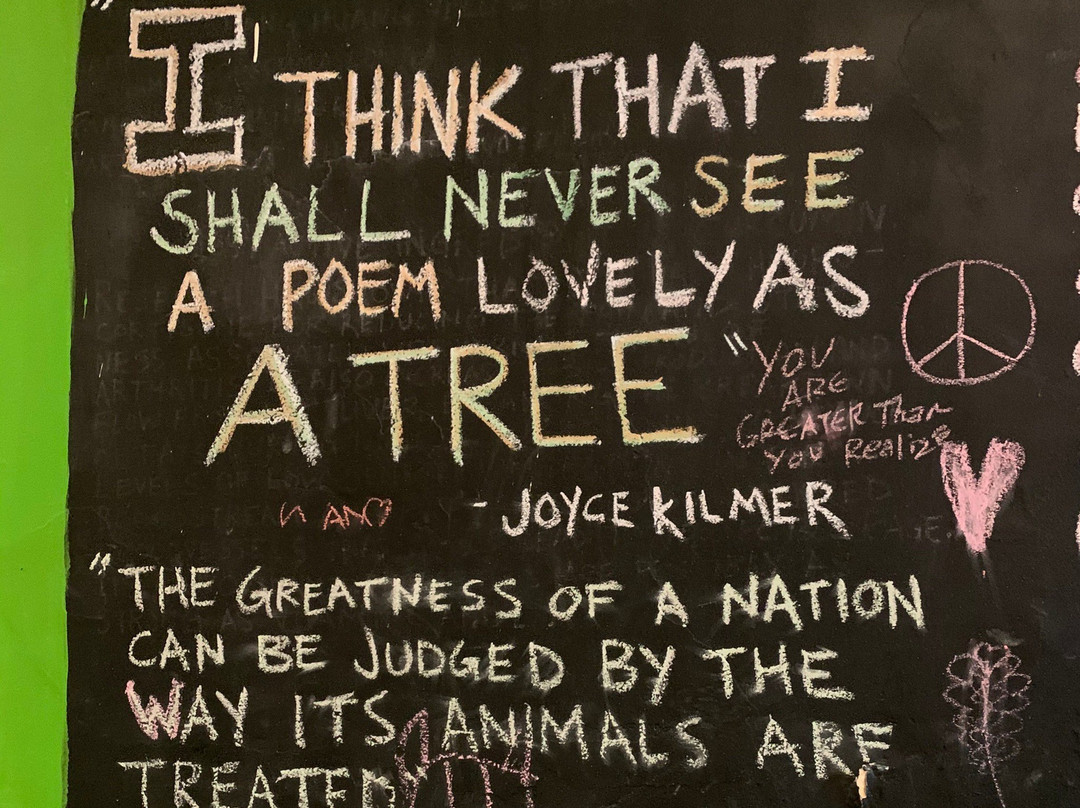 "I THINK THAT I
SHALL NEVER SEE
A POEM LOVELY AS
A TREE"
YOU
ARE
GREATER Than
you Realize
- JOYCE KILMER
"THE GREATNESS OF A NATION
CAN BE JUDGED BY THE
WAY ITS ANIMALS ARE
TREATED